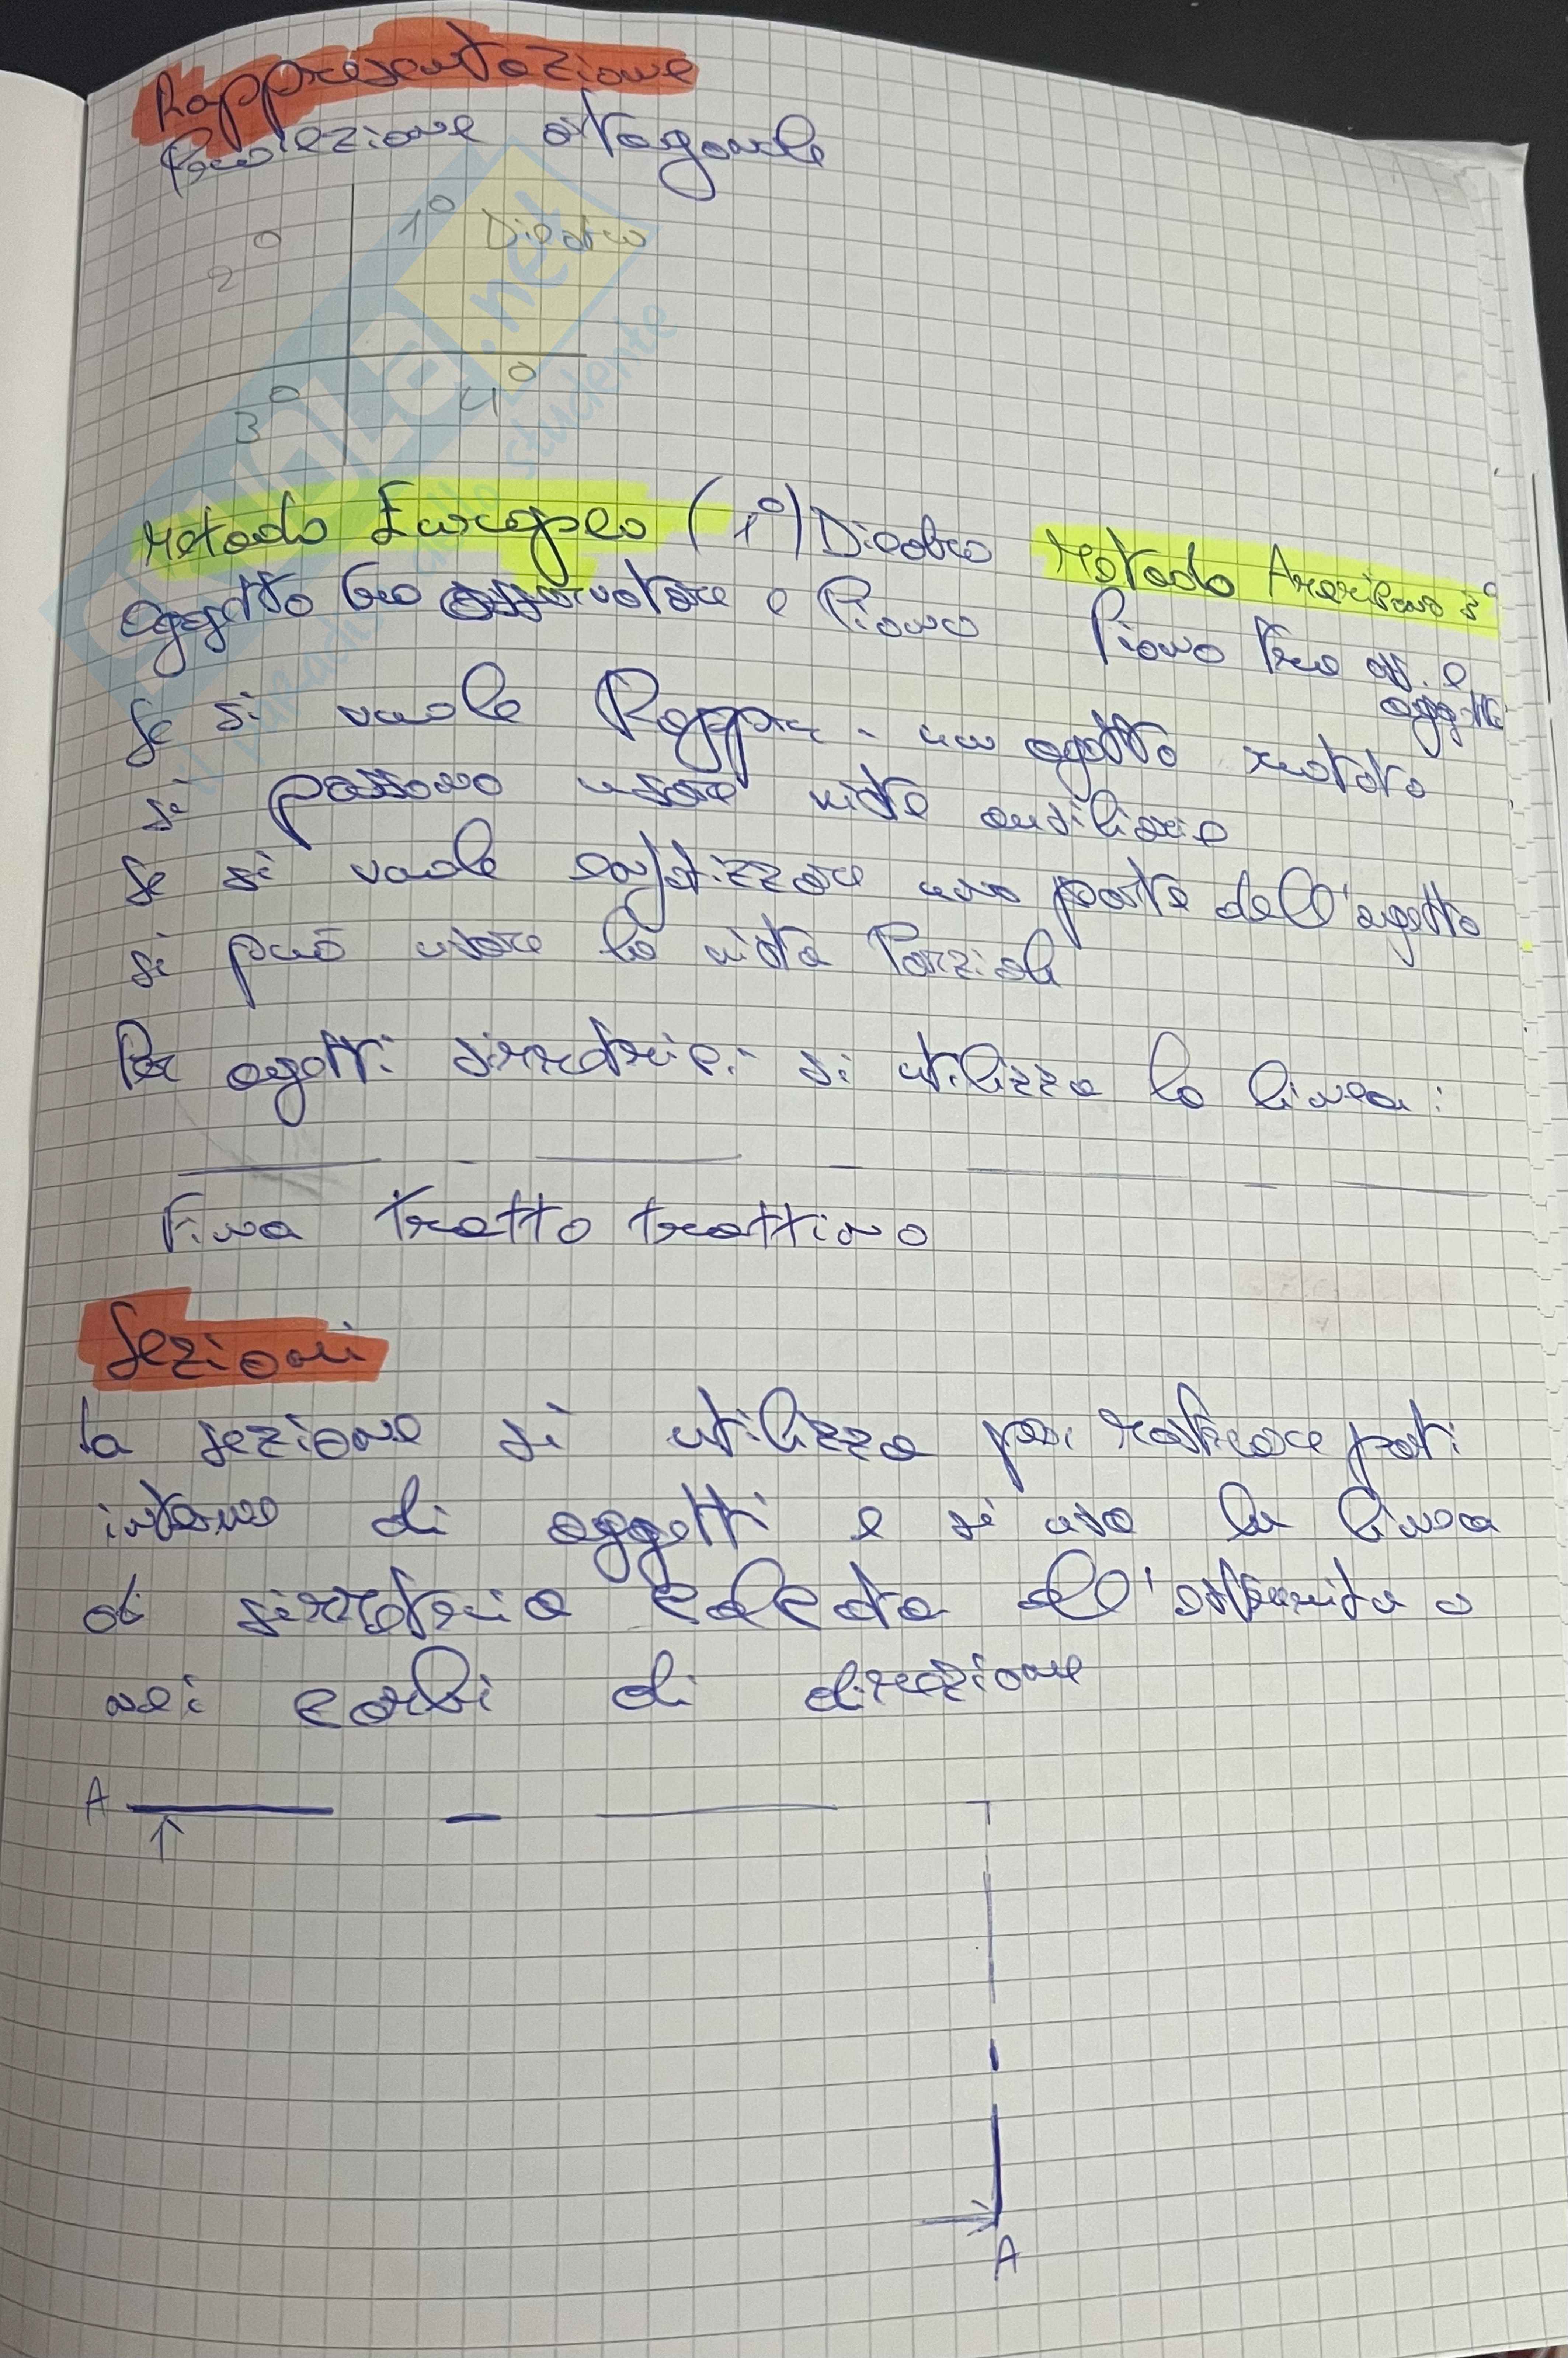 Rappresentazione
Proiezione ortogonale
2° 1° Diedro
3° 4°
Metodo Europeo (1°) Diedro Metodo Americano 3°
oggetto tra osservatore e Piano Piano tra oss. e
oggetto
Se si vuole Rappr. un ogetto ruotato
si possono usare viste ausiliarie
Se si vuole enfatizzare una parte dell'ogetto
si può usare la vista Parziale
Per ogetti simmetrici si utilizza la linea:
Fina tratto trattino
Sezioni
la sezione si utilizza per mostrare parti
interne di oggetti e si usa la linea
di simmetria calcata all'estremità o
nei cambi di direzione
A
A